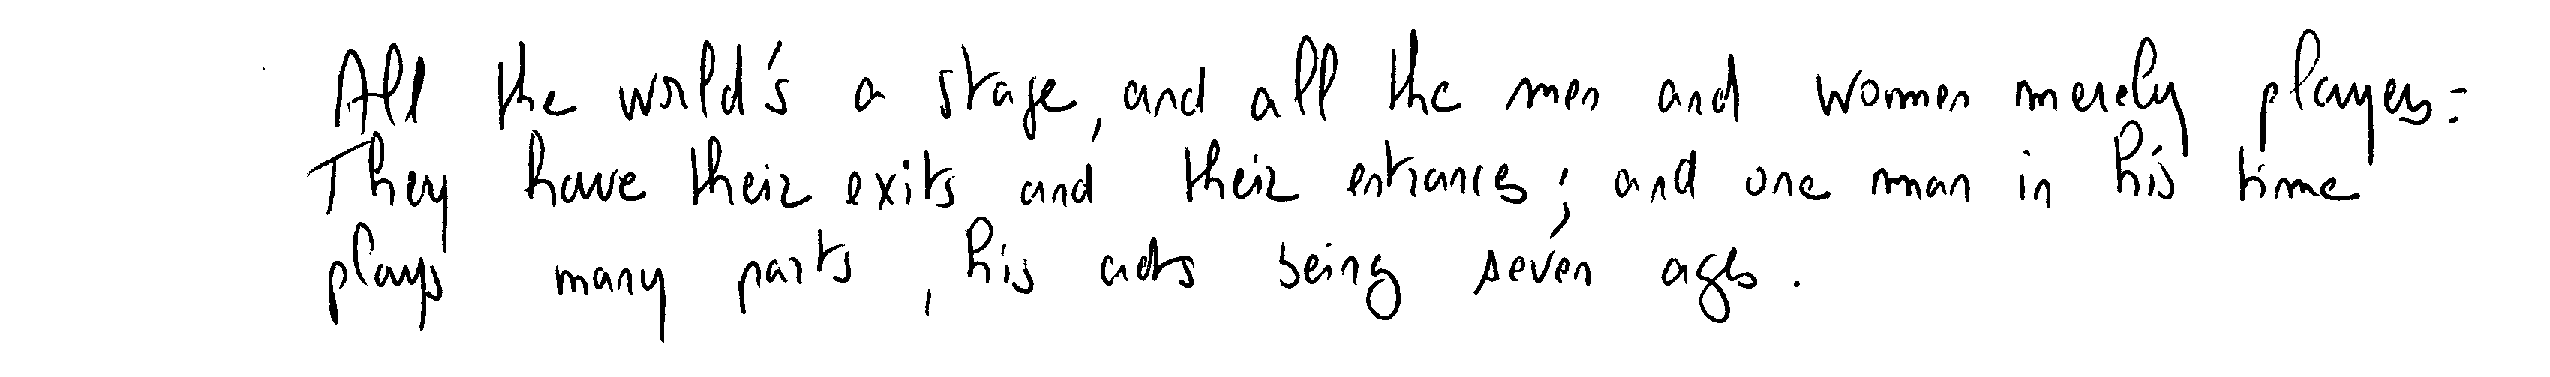 All the world's a stage, and all the men and women merely players:
They have their exits and their entrances; and one man in his time
plays many parts, his acts being seven ages.